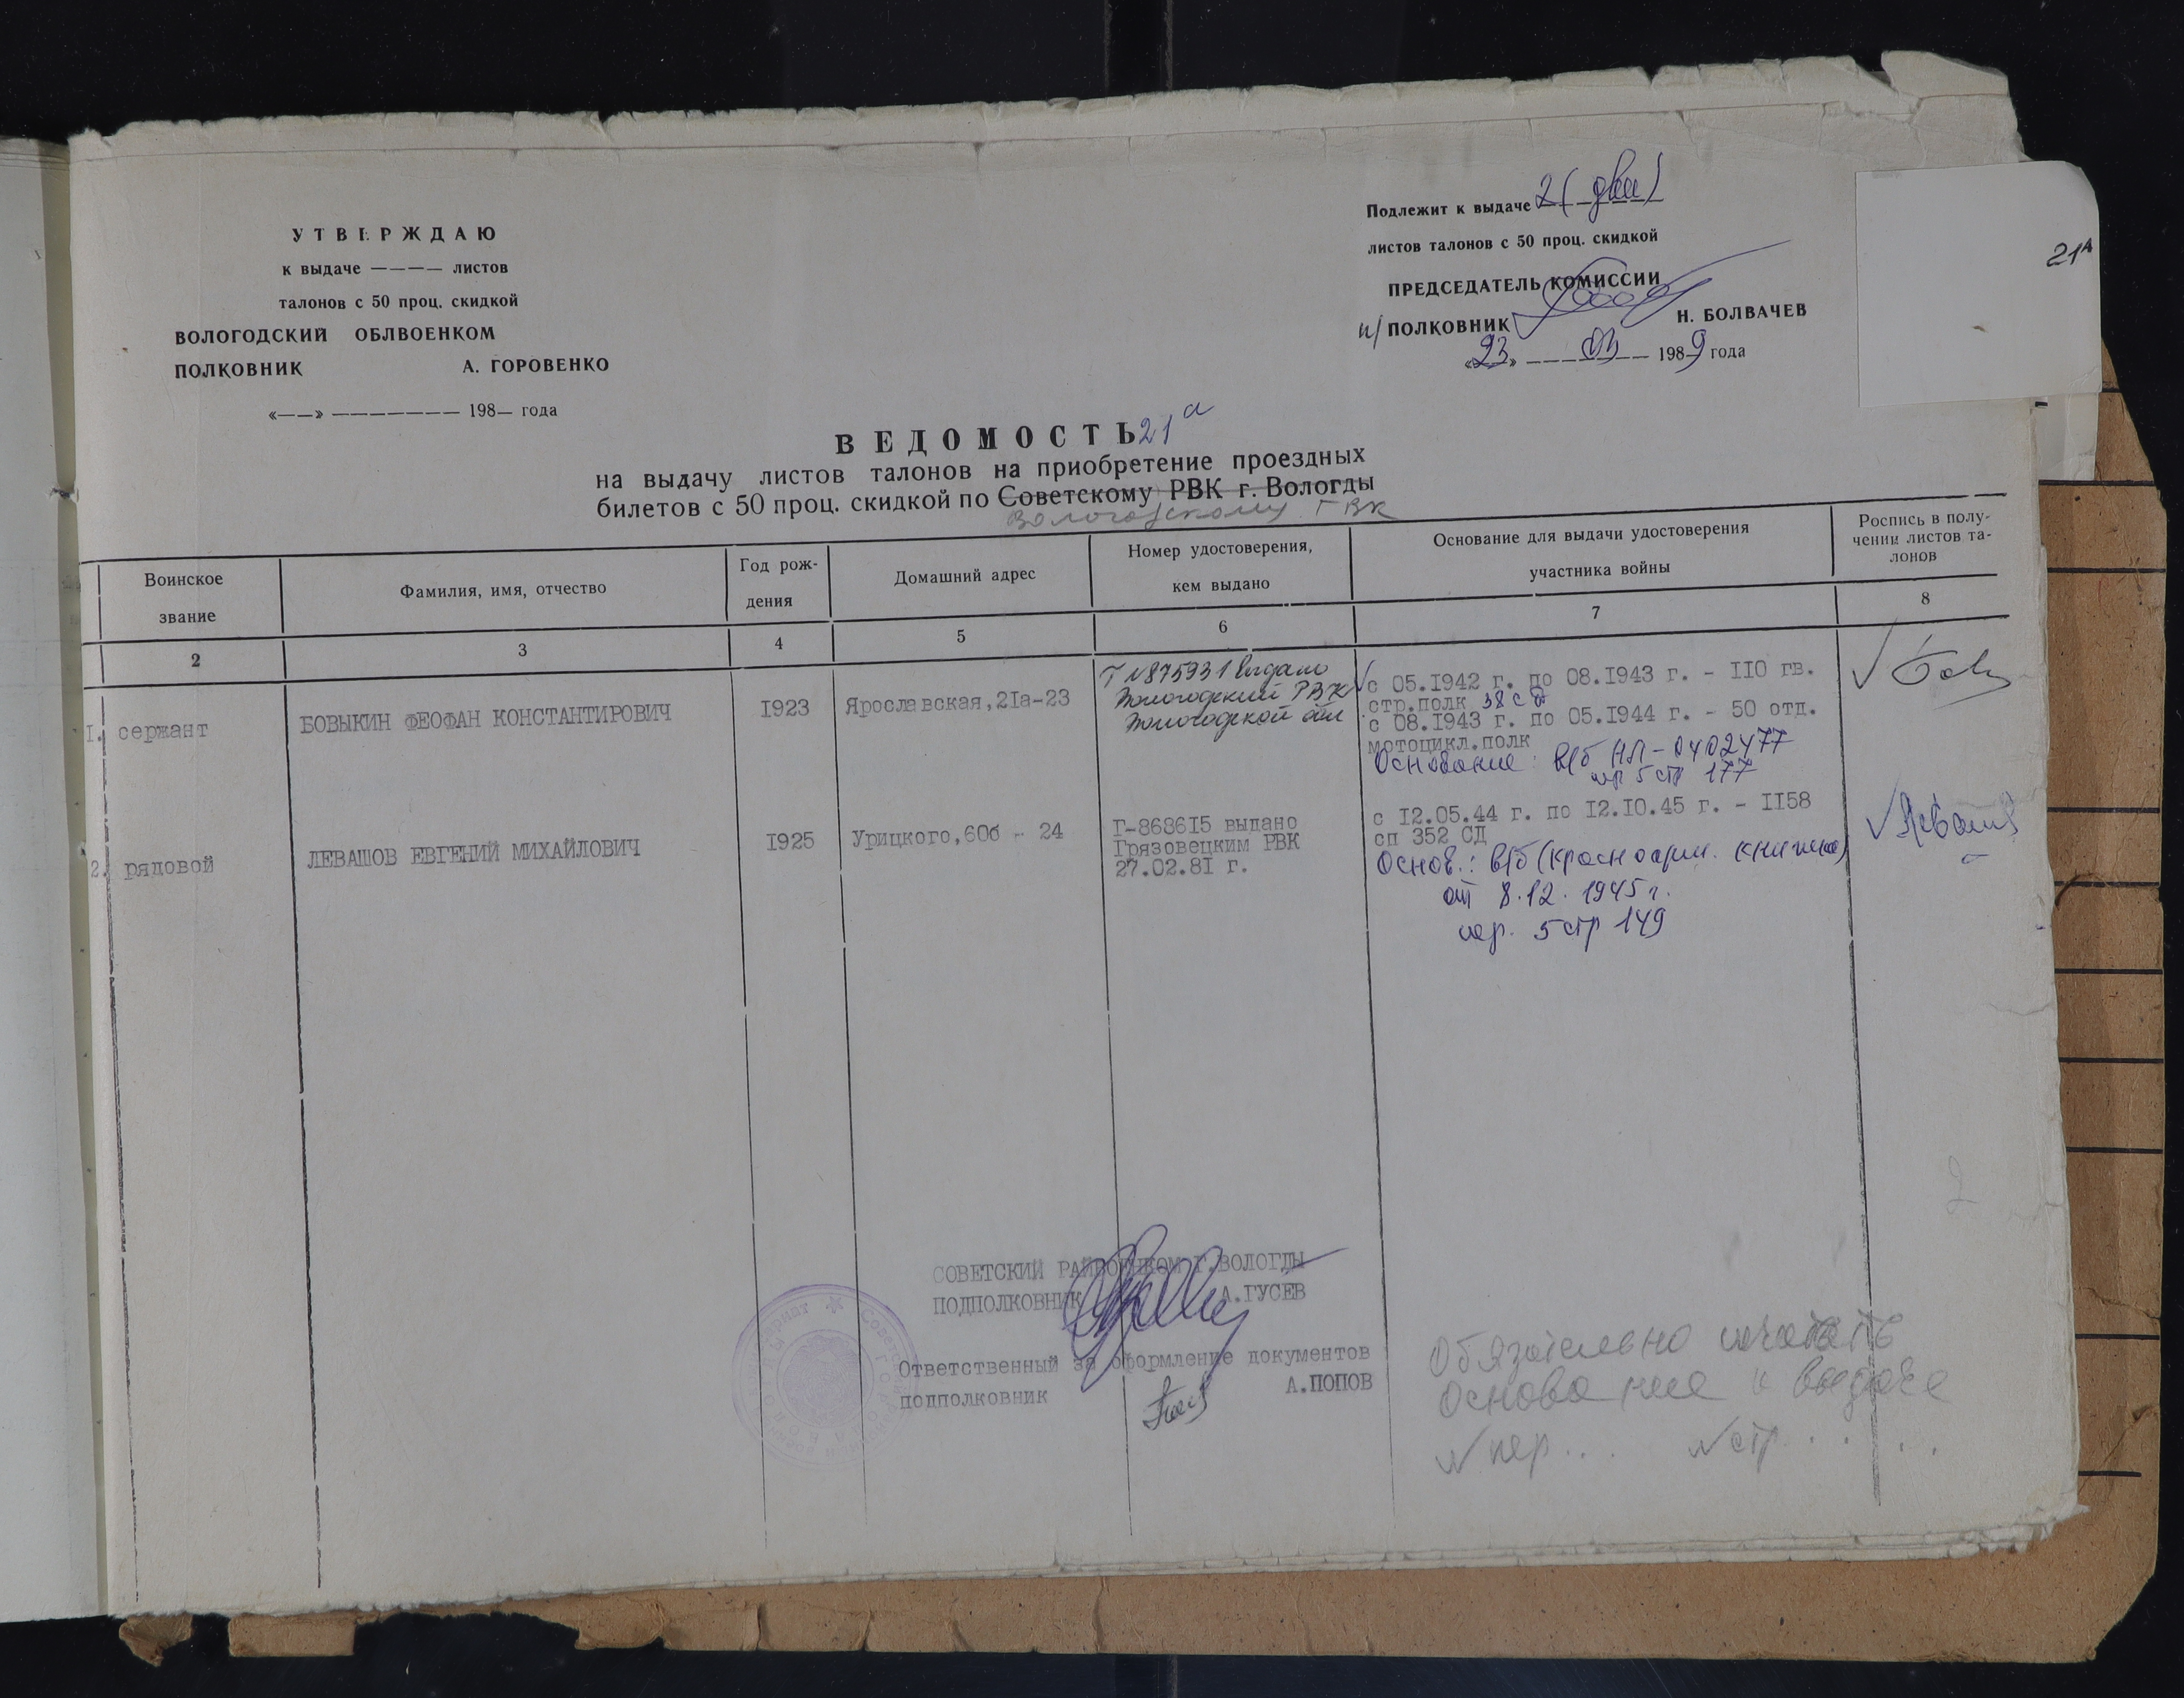 УТВЕРЖДАЮ
к выдаче ———— листов
талонов с 50 проц. скидкой
ВОЛОГОДСКИЙ ОБЛВОЕНКОМ
ПОЛКОВНИК А. ГОРОВЕНКО
«——» ——————— 198— года
Подлежит к выдаче 2 (два)
листов талонов с 50 проц. скидкой
ПРЕДСЕДАТЕЛЬ КОМИССИИ
п/ПОЛКОВНИК Н. БОЛВАЧЕВ
«23» 03 1989 года
21А
ВЕДОМОСТЬ 21а
на выдачу листов талонов на приобретение проездных
билетов с 50 проц. скидкой по Советскому РВК г. Вологды
Вологодскому ГВК
Воинское звание
Фамилия, имя, отчество
Год рож-
дения
Домашний адрес
Номер удостоверения,
кем выдано
Основание для выдачи удостоверения
участника войны
Роспись в полу-
чении листов та-
лонов
2 3 4 5 6 7 8
1. сержант
БОВЫКИН ФЕОФАН КОНСТАНТИРОВИЧ
1923
Ярославская,21а-23
Г №875931 выдано
Вологодский РВК
Вологодской обл
с 05.1942 г. по 08.1943 г. - 110 гв.
стр.полк 38 сд
с 08.1943 г. по 05.1944 г. - 50 отд.
мотоцикл.полк
Основание: в/б НЛ-0402477
пер 5 стр 177
2. рядовой
ЛЕВАШОВ ЕВГЕНИЙ МИХАЙЛОВИЧ
1925
Урицкого,60б - 24
Г-868615 выдано
Грязовецким РВК
27.02.81 г.
с 12.05.44 г. по 12.10.45 г. - 1158
сп 352 СД
Основ.: в/б (красноарм. книжка)
от 8.12.1945 г.
пер. 5 стр 149
СОВЕТСКИЙ РАЙВОЕНКОМ Г.ВОЛОГДЫ
ПОДПОЛКОВНИК А.ГУСЕВ
Ответственный за оформление документов
подполковник А.ПОПОВ
Обязательно
Основание к выдаче
№ пер... № стр.....
2